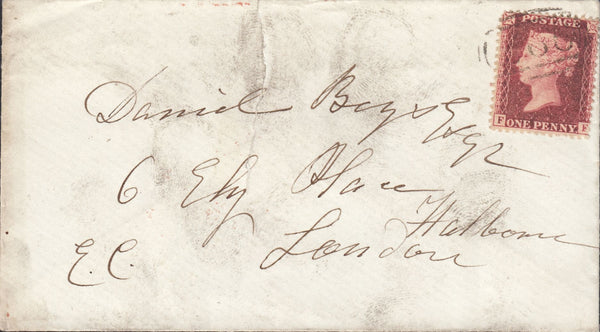 POSTAGE
F ONE PENNY F
Daniel Esqr
6 Ely Place
Holborn
E.C. London